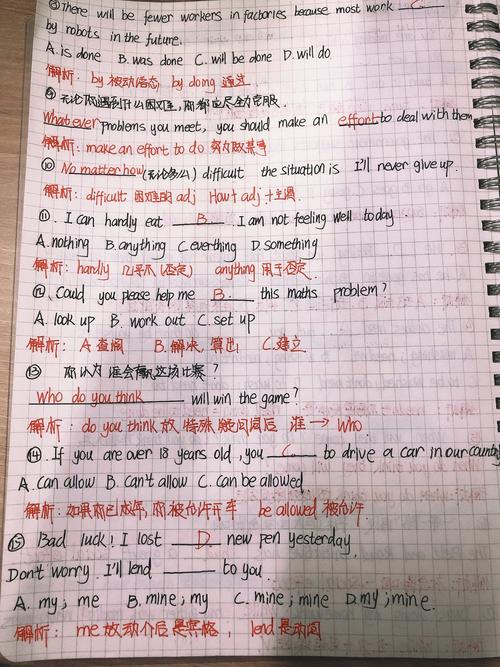 ⑧ There will be fewer workers in factories because most work C
by robots in the future.
A. is done B. was done C. will be done D. will do
解析: by 被动语态, by doing 通过
⑨ 无论你遇到什么困难,你都应尽全力克服.
Whatever problems you meet, you should make an effort to deal with them
解析: make an effort to do 努力做某事
⑩ No matter how (无论多么) difficult the situation is I'll never give up.
解析: difficult 困难的 adj How + adj + 主谓.
⑪. I can hardly eat B. I am not feeling well today
A. nothing B. anything C. everthing D. something
解析: hardly 几乎不 (否定) anything 用于否定.
⑫. Could you please help me B. this maths problem?
A. look up B. work out C. set up
解析: A 查阅 B. 解决, 算出 C. 建立
⑬ 你认为谁会赢这场比赛?
Who do you think will win the game?
解析: do you think 放特殊疑问词后 谁 → Who
⑭. If you are over 18 years old, you C to drive a car in our country
A. can allow B. can't allow C. can be allowed
解析: 如果你已成年,你被允许开车 be allowed 被允许
⑮ Bad luck! I lost D new pen yesterday
Don't worry. I'll lend to you.
A. my; me B. mine; my C. mine; mine D. my; mine.
解析: me 放动介后是宾格, lend 是动词